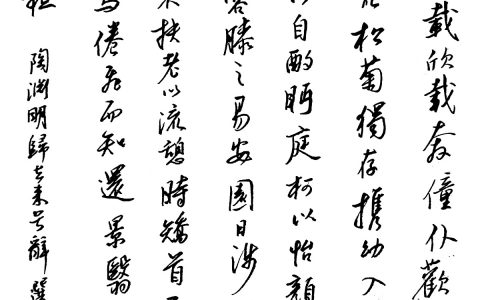 載欣載奔僮仆歡
松菊獨存攜幼入
以自酌眄庭柯以怡顏
容膝之易安園日涉
扶老以流憩時矯首
鳥倦飛而知還景翳
桓 陶淵明歸去來兮辭選